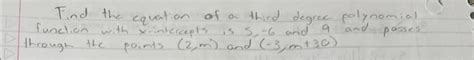 Find the equation of a third degree polynomial
function with x-intercepts is 5, -6 and 9 and passes
through the points (2,m) and (-3,m+30)